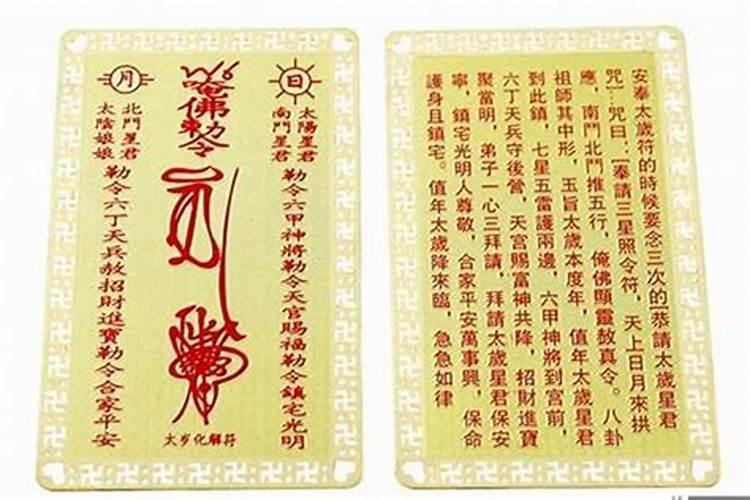 日
太陽星君
南鬥星君
勒令六甲神將勒令天官賜福勒令鎮宅光明
佛勅令
太岁化解符
月
北鬥星君
太陰娘娘
勒令六丁天兵赦招財進寶勒令合家平安
安奉太歲符的時候要念三次的[恭請太歲星君
咒]…咒曰：[奉請三星照令符，天上日月來拱
應，南鬥北鬥推五行，俺佛顯靈敖真令。八卦
祖師其中形，玉旨太歲本度年，值年太歲星君
到此鎮，七星五雷護兩邊，六甲神將到宮前，
六丁天兵守後營，天宮賜富神共降，招財進寶
聚當明，弟子一心三拜請，拜請太歲星君保安
寧，鎮宅光明人尊敬，合家平安萬事興，保命
護身且鎮宅。值年太歲降來臨，急急如律